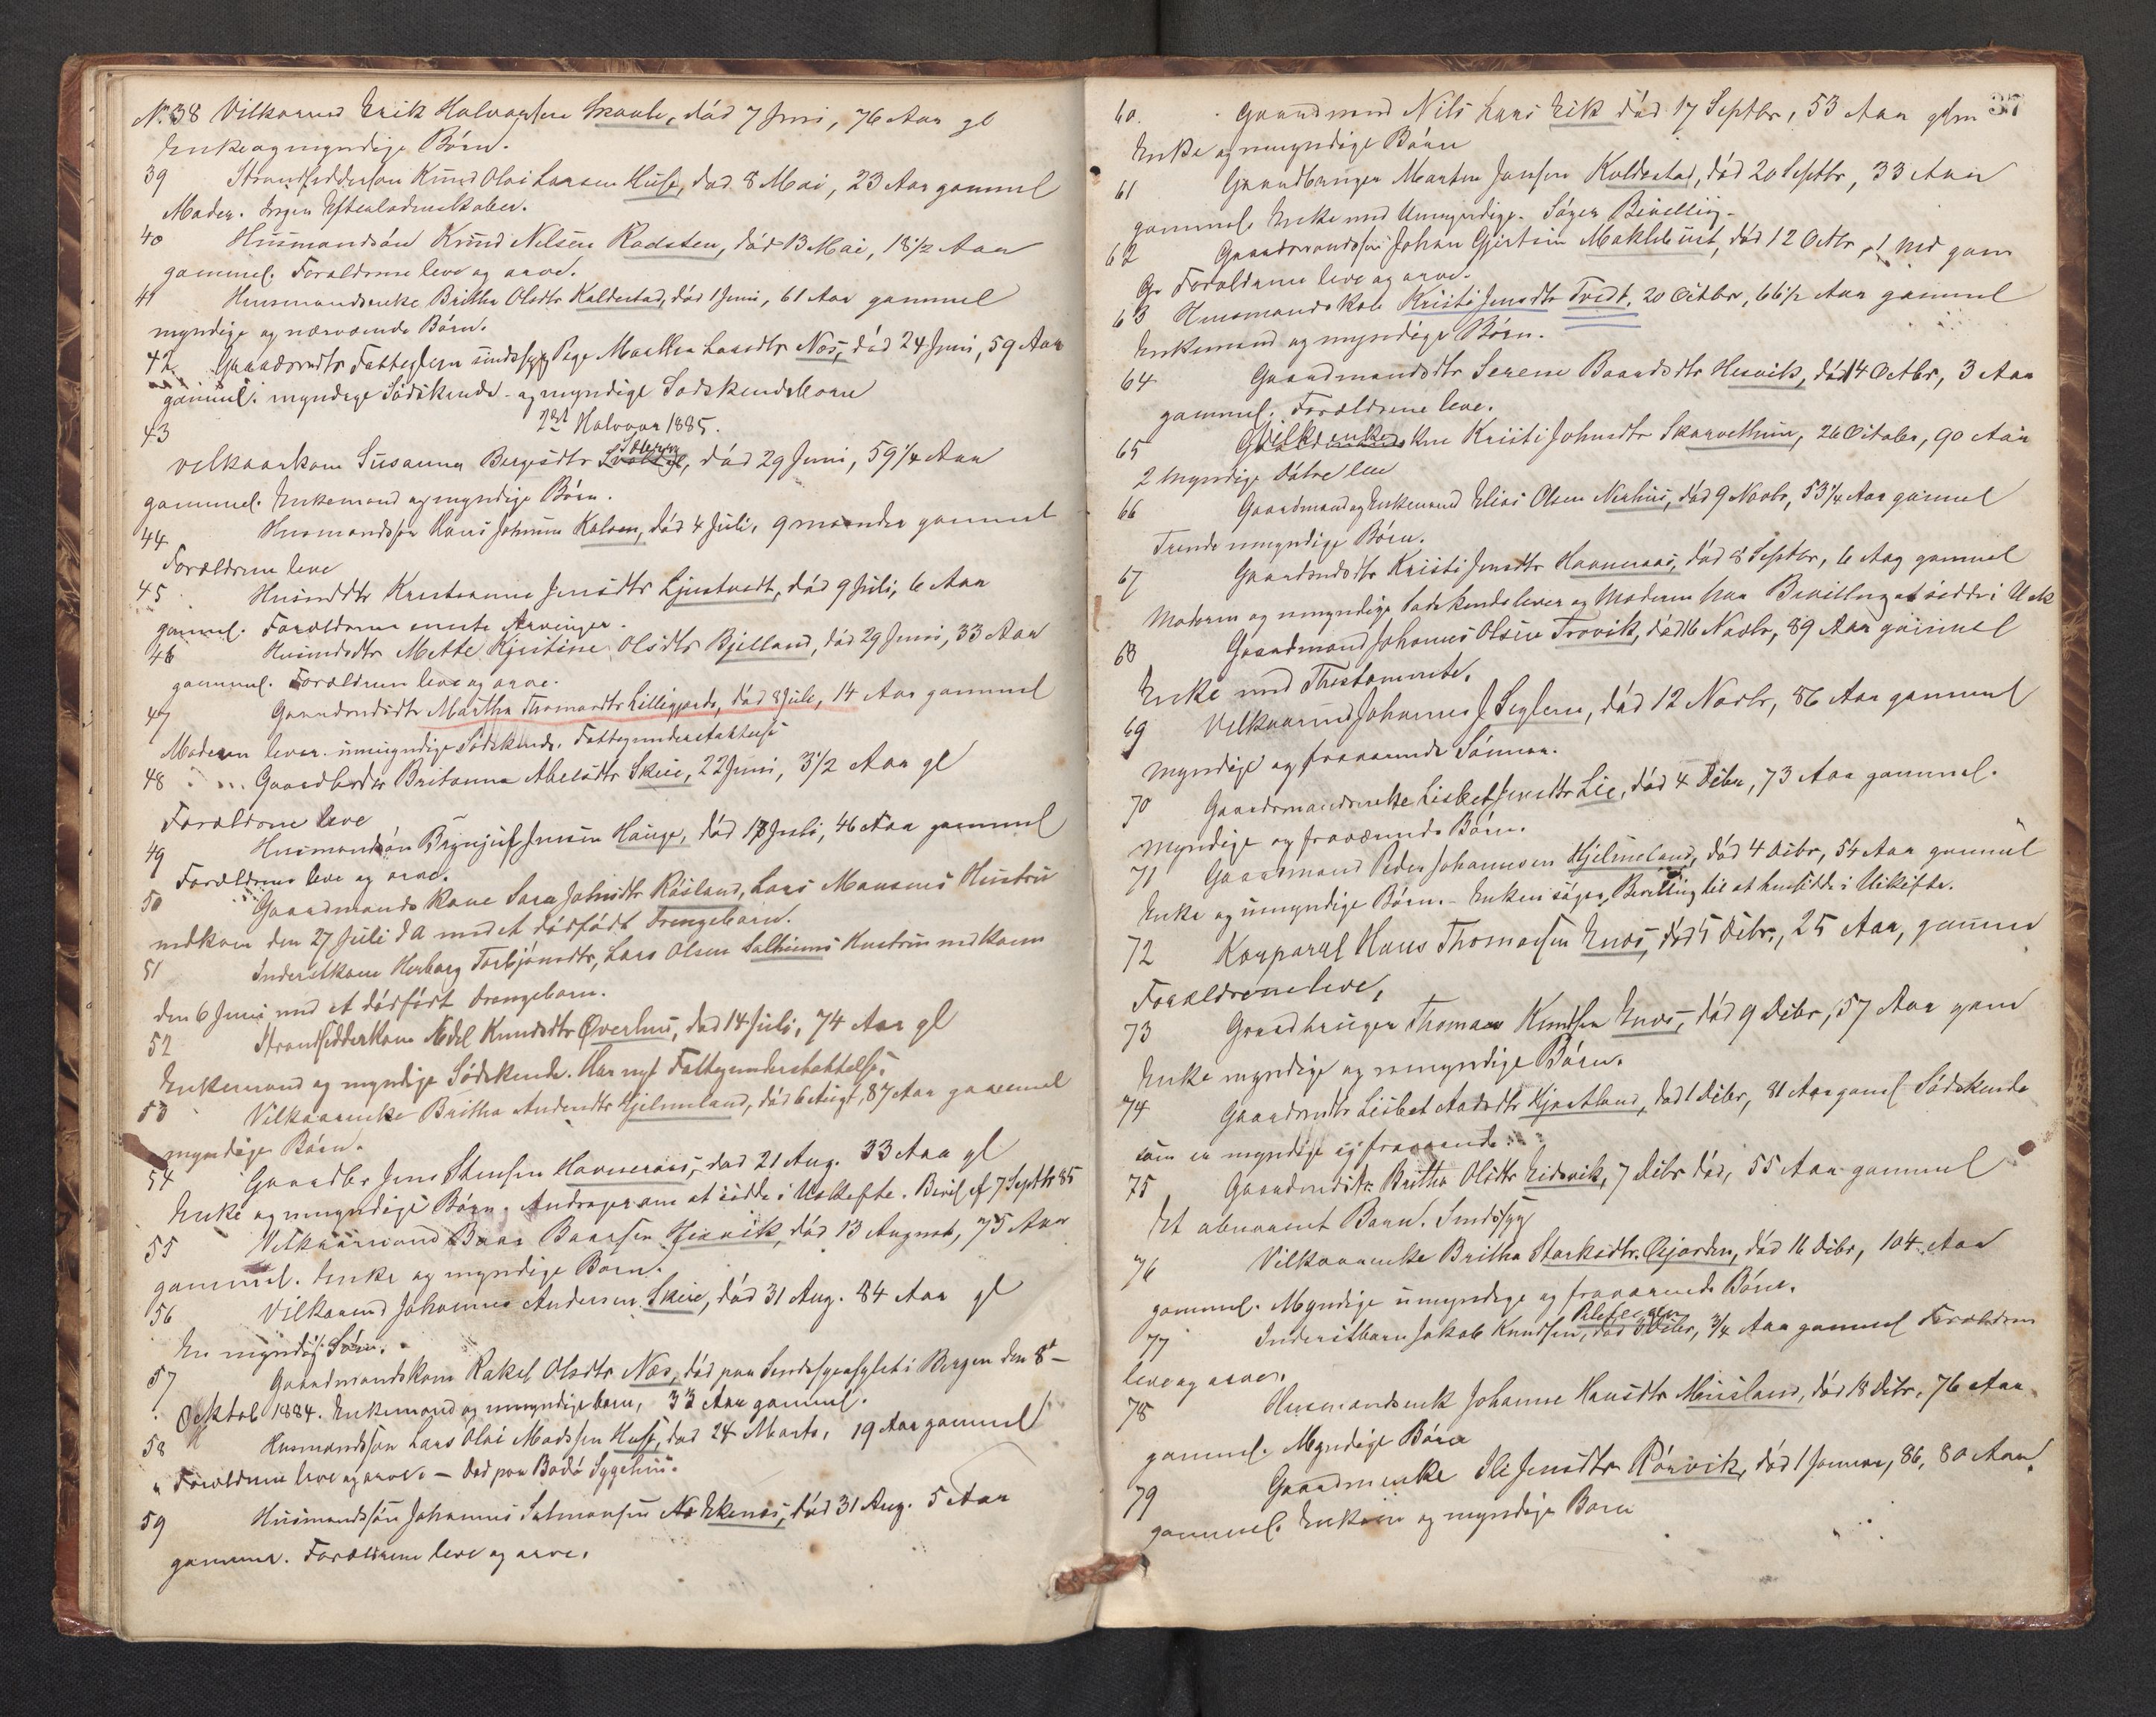 No. 38 Vilkaarmd Erik Halvorsen Skaale, død 7 Juni, 76 Aar gl
Enke og myndige Børn.
39 Strandsidderson Knud Olai Larsen Huse, død 8 Mai, 23 Aar gammel
Moder. Ingen Efterladenskaber.
40 Husmandsøn Knud Nilsen Radsten, død 13 Mai, 18 1/2 Aar
gammel. Forældrene leve og arve.
41 Husmandsenke Britha Olsdtr Kaldestad, død 1 Juni, 61 Aar gammel
myndige og nærværende Børn.
42 Fatteglem sindssyg Pige Martha Larsdtr Næs, død 24 Juni, 59 Aar
gammel. myndige Sødskende og myndige Sødskendebørn
2det Halvaar 1885.
43
Vilkaarkone Susanna Bergesdtr, død 29 Juni, 59 1/4 Aar
gammel. Enkemand og myndige Børn.
44 Husmandssøn Hans Johnsen Kalven, død 4 Juli, 9 maaneder gammel
Forældrene leve
45 Husmddtr Kristianne Jensdtr Ljustvedt, død 9 Juli, 6 Aar
gammel. Forældrene eneste Arvinger.
46 Husmdsdtr Mette Kjistine Olsdtr Bjelland, død 29 Juni, 33 Aar
gammel. Forældrene leve og arve.
47 Gaardmdsdtr Martha Thomasdtr Lillegjærde, død 8 Juli, 14 Aar gammel
Moderen lever. umyndige Sødskende. Fattigunderstøttelse
48 Gaardbrdtr Britanna Abelsdtr Skeie, 22 Juni, 3 1/2 Aar gl
Forældrene leve
49 Husmandsøn Brynjulf Jensen Hauge, død 17 Juli, 46 Aar gammel
Forældrene leve og arve.
50 Gaardmands Kone Sara Johnsdtr Røisland, Lars Monsens Hustru
nedkom den 27 Juli d A med et dødfødt Drengebarn.
51 Inderstkone Herborg Torbjønsdtr, Lars Olsen Salthuns Hustru nedkom
den 6 Juni med et dødfødt Drengebarn.
52 Strandsidderkone Adel Knudsdtr Øverhus, død 14 Juli, 74 Aar gl
Enkemand og myndige Sødskende. Har nyt Fattigunderstøttelse.
53 Vilkaarenke Britha Andersdtr Hjelmeland, død 6 Augt, 87 Aar gammel
myndige Børn.
54 Gaardbr Jens Stensen Havneraas, død 21 Aug. 33 Aar gl
Enke og umyndige Børn. Andrager om at sidde i Uskifte. Bevil af 7 Septbr 85
55 Vilkaarmand Baar Baarsen Hisvik, død 13 August, 75 Aar
gammel. Enke og myndige Børn.
56 Vilkaarmd Johannes Andersen Skeie, død 31 Aug. 84 Aar gl
En myndig Søn.
57 Gaardmandskone Rakel Olsdtr Næs, død paa Sindssygeasylet i Bergen den 8de
Oktob 1884. Enkemand og umyndige børn, 33 Aar gammel.
58 Husmandssøn Lars Olai Madssen Huse, død 24 Marts, 19 Aar gammel
Forældrene leve og arve. - Død paa Bodø Sygehus.
59 Husmandssøn Johannes Salmonsen Nækkenæs, død 31 Aug. 5 Aar
gammel. Forældrene leve og arve.
37
60. Gaardmand Nils Lars Eik død 17 Septbr, 53 Aar glm
Enke og umyndige Børn
61 Gaardbruger Morten Jansen Koldestad, død 20 Septbr, 33 Aar
gammel. Enke med Umyndige. Søger Bevilling.
62 Gaardmandssøn Johan Gjertsin Maklebust, død 12 Octbr, 1 Md gam
Gr Forældrene leve og arve.
63 Husmandskone Kristi Jensdtr Tvedt, 20 Octbr, 66 1/2 Aar gammel
Enkemand og myndige Børn.
64 Gaardmandsdtr Serene Baardsdtr Hisvik, død 14 Octbr, 3 Aar
gammel. Forældrene leve.
65 Kristi Johnsdtr Skarvethun, 26 October, 90 Aar
2 myndige døtre leve
66 Gaardmand og Enkemand Elias Olsen Nerhus, død 9 Novbr, 53 1/4 Aar gammel
Trende umyndige Børn.
67 Gaardmdsdtr Kristi Jensdtr Havneraas, død 8 Septbr, 6 Aar gammel
Moderen og umyndige Sødskende lever og Moderen har Bevilling at sidde i Usk
68 Gaardmand Johannes Olsen Trovik, død 16 Novbr, 89 Aar gammel
Enke med Thestamente.
69 Vilkaarmd Johannes J Seglem, død 12 Novbr, 86 Aar gammel
myndige og fraværende Sønner.
70 Gaardmandsenke Lisbet Jensdtr Lie, død 4 Debr, 73 Aar gammel.
myndige og fraværende Børn.
71 Gaardmand Peder Johannesen Hjelmeland, død 4 Debr, 54 Aar gammel
Enke og umyndige Børn. - Enken søger Bevilling til at hensidde i Uskifte.
72 Korporal Hans Thomassen Ennes, død 5 Debr, 25 Aar, gammel
Forældrene leve,
73 Gaardbruger Thomas Knudsen Ennes, død 9 Debr, 57 Aar gam
Enke myndige og umyndige Børn.
74 Gaardmdtr Lisbet Aadsdtr Hjortland, død 1 Debr, 81 Aar gaml Sødskende
som er myndige og fraværende.
75 Gaardmdsdtr Britha Olsdtr Eidsvik, 7 Debr død, 55 Aar gammel
Et abnormt Barn. Sindssyg
76 Vilkaarenke Britha Starksdtr Øjorden, død 16 Debr, 104 Aar
gammel. Myndige umyndige og fraværende Børn.
77 Inderstbarn Jakob Knudsen, død 3 Debr, 3/4 Aar gammel Forældrene
leve og arver.
78 Husmandsenk Johanne Hansdtr Meisland, død 18 Debr, 76 Aar
gammel. Myndige Børn
79 Gaardmenke Sle Jensdtr Rørvik, død 1 Januar, 86, 80 Aar
gammel. og myndige Børn